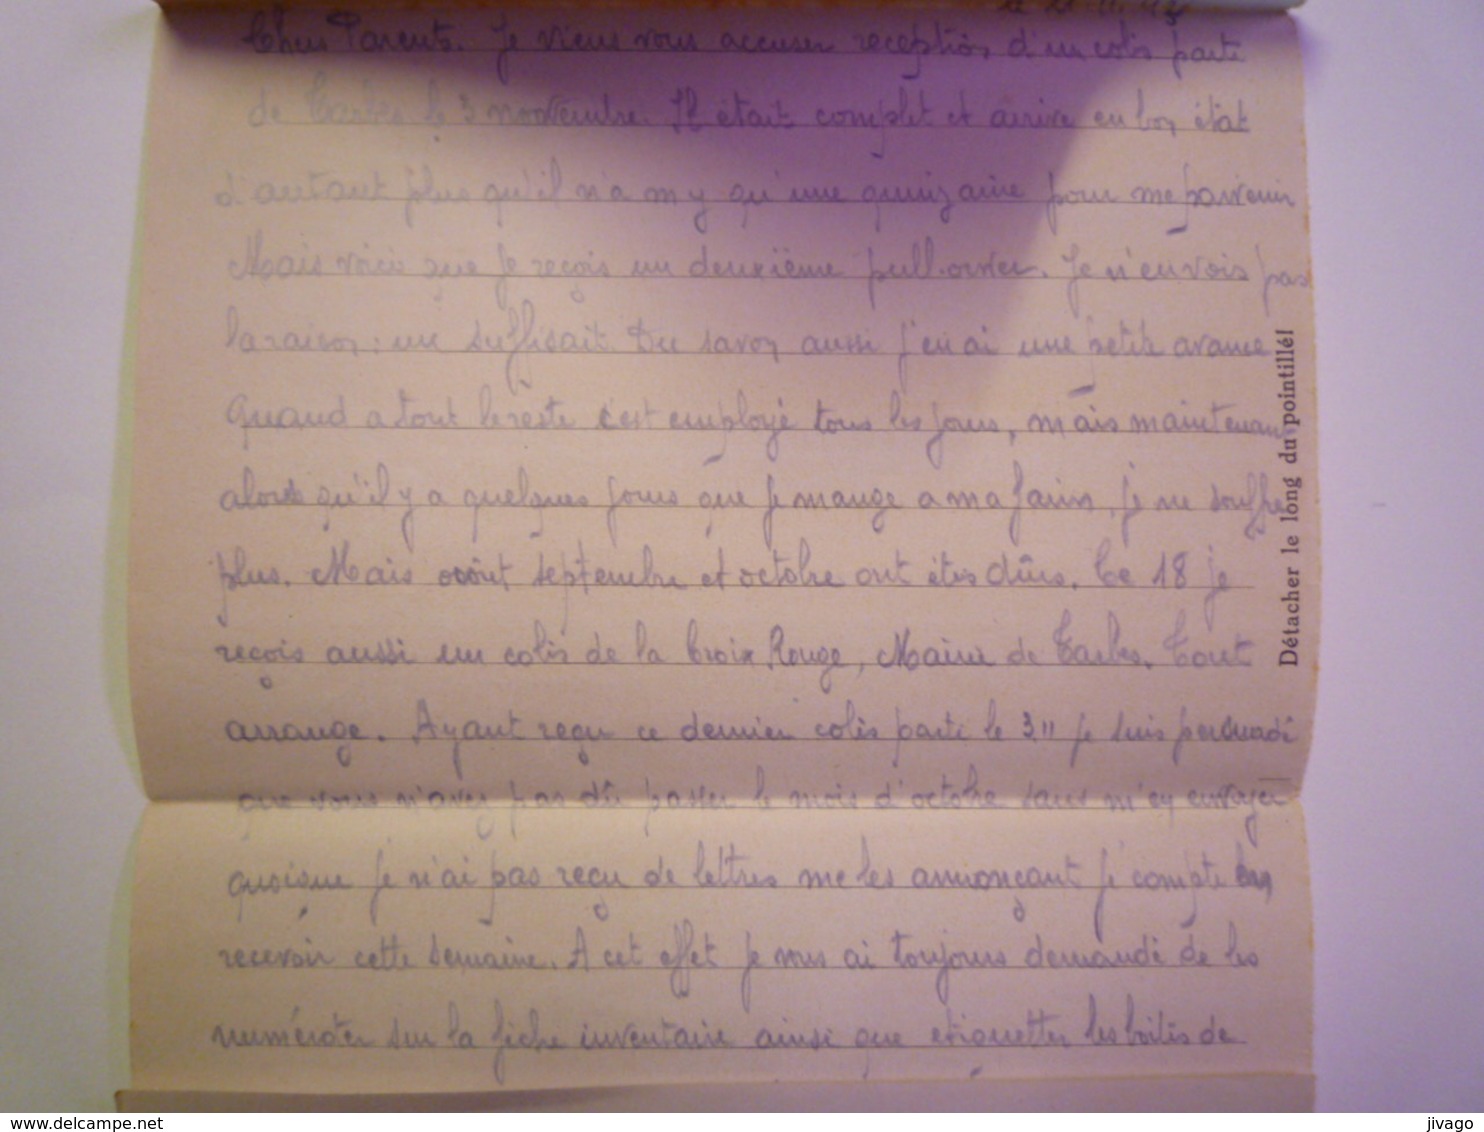 Chers Parents. Je viens vous accuser reception d'un colis parti
de Tarbes le 3 novembre. Il était complet et arrive en bon état
d'autant plus qu'il n'a m y qu'une quinzaine pour me parvenir
Mais voici que je reçois un deuxième pull-over. Je n'en vois pas
la raison: un suffisait. Du savon aussi j'en ai une petite avance
Quand a tout le reste c'est employé tous les jours, mais maintenant
alors qu'il y a quelques jours que je mange a ma faim, je ne souffre
plus. Mais août septembre et octobre ont étés dûrs. Ce 18 je
reçois aussi un colis de la Croix Rouge, Mairie de Tarbes. Tout
arrange. Ayant reçu ce dernier colis parti le 3.11 je suis persuadé
que vous n'avez pas dû passer le mois d'octobre sans m'en envoyer
quoique je n'ai pas reçu de lettres me les annonçant j'compte en
recevoir cette semaine. A cet effet je vous ai toujours demandé de les
numéroter sur la fiche inventaire ainsi que etiquetter les boîtes de
Détacher le long du pointillé!
delcampe.net
jivago